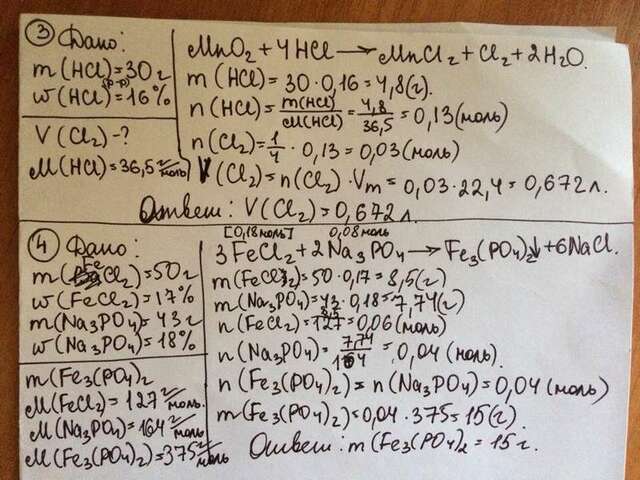 ③ Дано:
m(HCl)=30г
(р-р)
w(HCl)=16%
V(Cl₂)-?
M(HCl)=36,5 г/моль
MnO₂+4HCl→MnCl₂+Cl₂+2H₂O.
m(HCl)=30·0,16=4,8(г).
n(HCl)=m(HCl)/M(HCl)=4,8/36,5=0,13(моль)
n(Cl₂)=1/4·0,13=0,03(моль)
V(Cl₂)=n(Cl₂)·Vm=0,03·22,4=0,672л.
Ответ: V(Cl₂)=0,672л.
④ Дано:
m(FeCl₂)=50г
w(FeCl₂)=17%
m(Na₃PO₄)=43г
w(Na₃PO₄)=18%
m(Fe₃(PO₄)₂
M(FeCl₂)=127 г/моль.
M(Na₃PO₄)=164 г/моль
M(Fe₃(PO₄)₂)=375 г/моль
[0,18моль] 0,08моль
3FeCl₂+2Na₃PO₄→Fe₃(PO₄)₂↓+6NaCl.
m(FeCl₂)=50·0,17=8,5(г)
m(Na₃PO₄)=43·0,18=7,74(г)
n(FeCl₂)=8,5/127=0,06(моль)
n(Na₃PO₄)=7,74/164=0,04(моль).
n(Fe₃(PO₄)₂)=n(Na₃PO₄)=0,04(моль)
m(Fe₃(PO₄)₂)=0,04·375=15(г).
Ответ: m(Fe₃(PO₄)₂=15г.